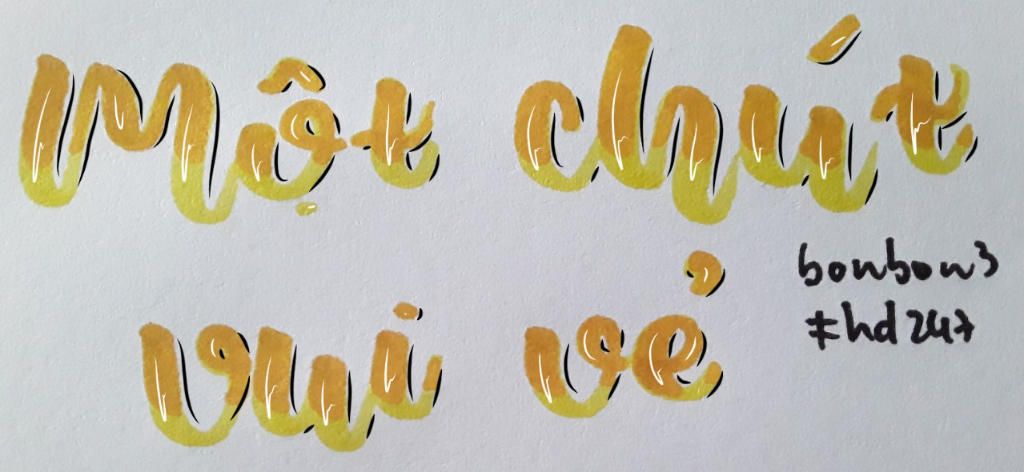 Một chút
vui vẻ
bonbon3
#hd247